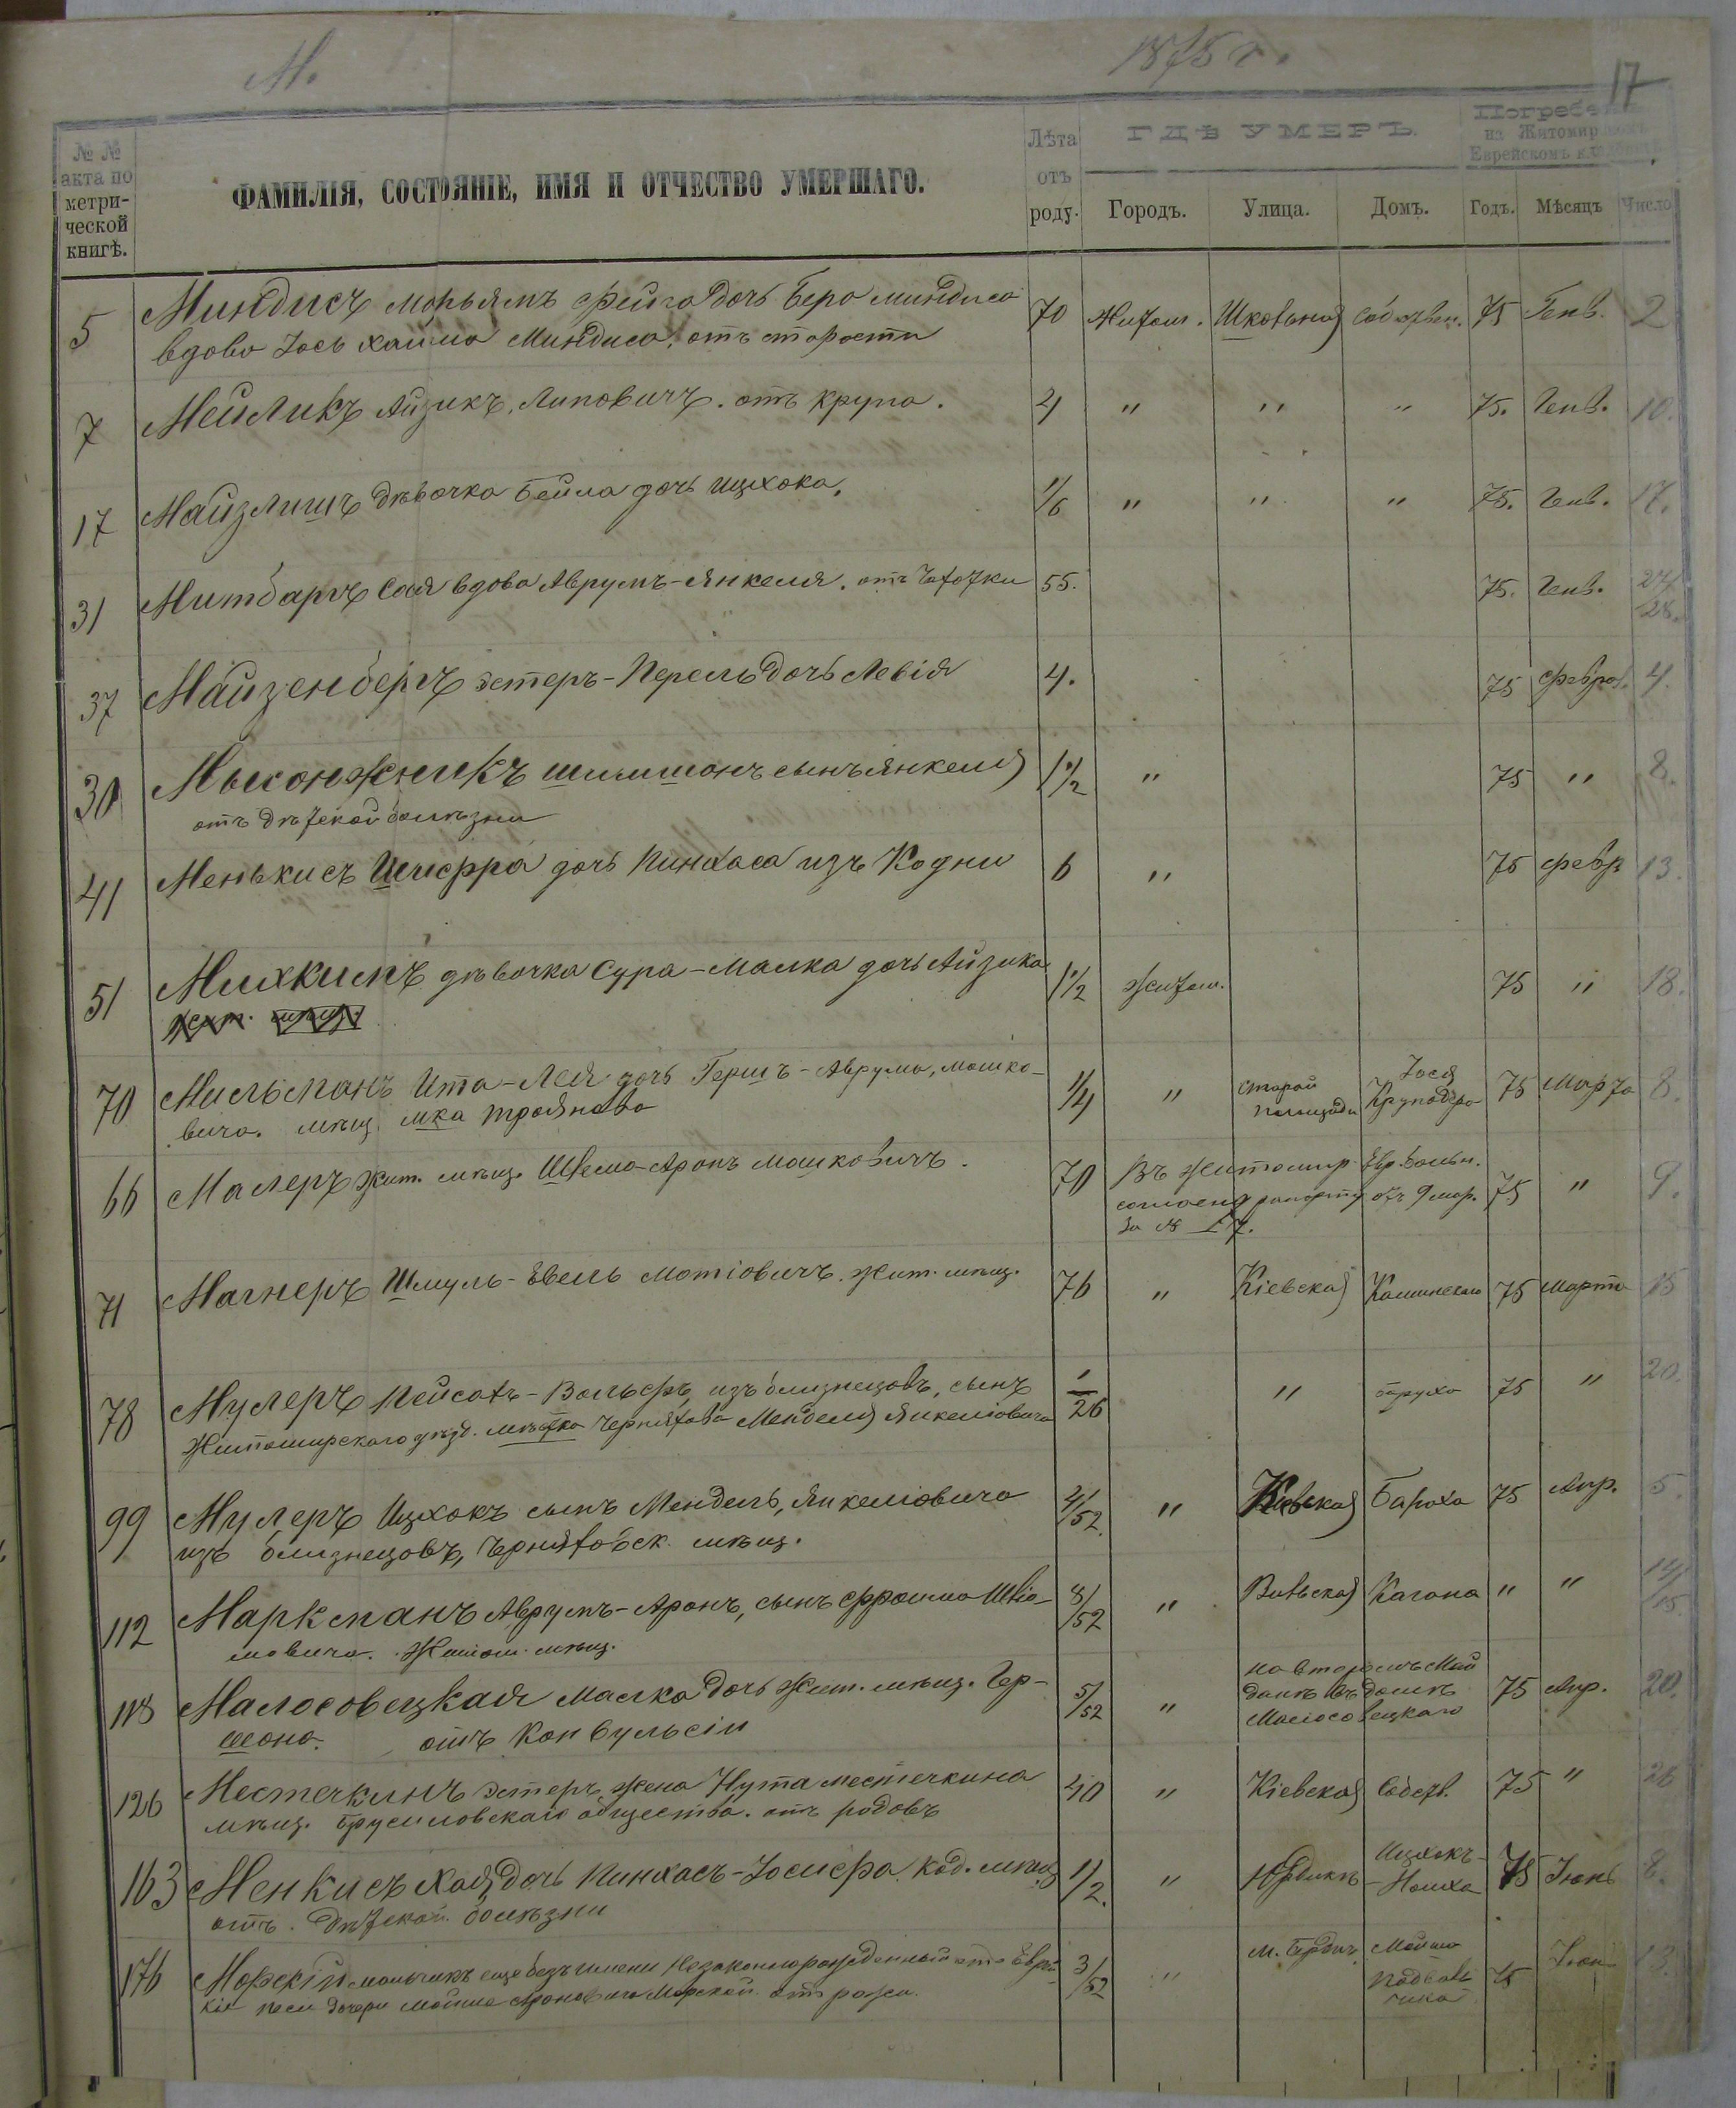 М. 1875 г.
17
№ № акта по метрической книгѣ. ФАМИЛІЯ, СОСТОЯНІЕ, ИМЯ И ОТЧЕСТВО УМЕРШАГО. Лѣта отъ роду. ГДѢ УМЕРЪ Городъ. Улица. Домъ. Погребе на Житомир Еврейскомъ Годъ. Мѣсяцъ Число
5 Миндисъ Морьямъ Фейга дочь Бера Миндиса 70 Житом. Школьная собствен. 75 Генв. 2
вдова Іось Хаима Миндиса. отъ старости
7 Мейликъ Айзикъ, Липовичъ. отъ крупа. 4 " " " 75. Генв. 10.
17 Майзлишъ дѣвочка Бейла дочь Ицхока. 1/6 " " " 75. Генв. 17.
31 Митбаргъ Сося вдова Аврумъ-Янкеля. отъ чахотки 55. 75. Генв. 27/28.
37 Майзенбергъ Эстеръ-Перель дочь Левія 4. 75 Февра. 4.
30 Мысонжникъ Шимшонъ сынъ Янкеля 1 1/2 " 75 " 8.
отъ дѣтской болѣзни
41 Менькисъ Шифра дочь Пинхаса изъ Кодни 6 " 75 Февр 13.
51 дѣвочка Сура-Малка дочь Айзика 1 1/2 Житом. 75 " 18.
70 Мильманъ Ита-Лея дочь Гершъ-Аврума, Мошко- 1/4 " старой Іося Круподера 75 Марта 8.
вича. мѣщ. мка Троянова
66 Малеръ Жит. мѣщ. Шлема-Аронъ Мошковичъ. 70 Въ Житомир. Евр. больн. 75 " 9.
согласно рапорту отъ 9 мар.
за № 17.
71 Магнеръ Шмуль-Евель Мотіовичъ. Жит. мѣщ. 76 " Кіевская Каминскаго 75 Марта 15
78 Мулеръ Пейсахъ-Вольфъ, изъ близнецовъ, сынъ 1/26 " Баруха 75 " 20.
Житомирскаго уѣзд. мѣстка Черняхова Менделя Янкеліовича
99 Мулеръ Ицхокъ сынъ Мендель, Янкеліовича 4/52. " Кіевская Бароха 75 Апр. 5.
изъ близнецовъ, Черняховск. мѣщ.
112 Маркманъ Аврумъ-Аронъ, сынъ Фроима Шліо- 8/52 " Вильская Кагана " " 14/15.
мовича. Житом. мѣщ.
118 Малосовецкая Малка дочь Жит. мѣщ. Гер- 5/52 " на второмъ Май 75 Апр. 20.
шона. отъ Конвульсіи данѣ въ домѣ
Малосовецкаго
126 Местечкинъ Эстеръ жена Нута Местечкина 40 " Кіевская Собств. 75 " 26
мѣщ. Брусиловскаго общества. отъ родовъ
163 Менкисъ Хая, дочь Пинхасъ-Іосифа. Код. мѣщ 1/2. " Юрдикѣ Ицхокъ- 75 Іюнь 8.
отъ. дѣтской болѣзни
176 Морскій мальчикъ еще безъ имени незаконнорожденный отъ Еврей- 3/52 " м. Бердич. Мойша 75 Іюн 13.
дочери Мойше Ароновича Морской. отъ рожи.